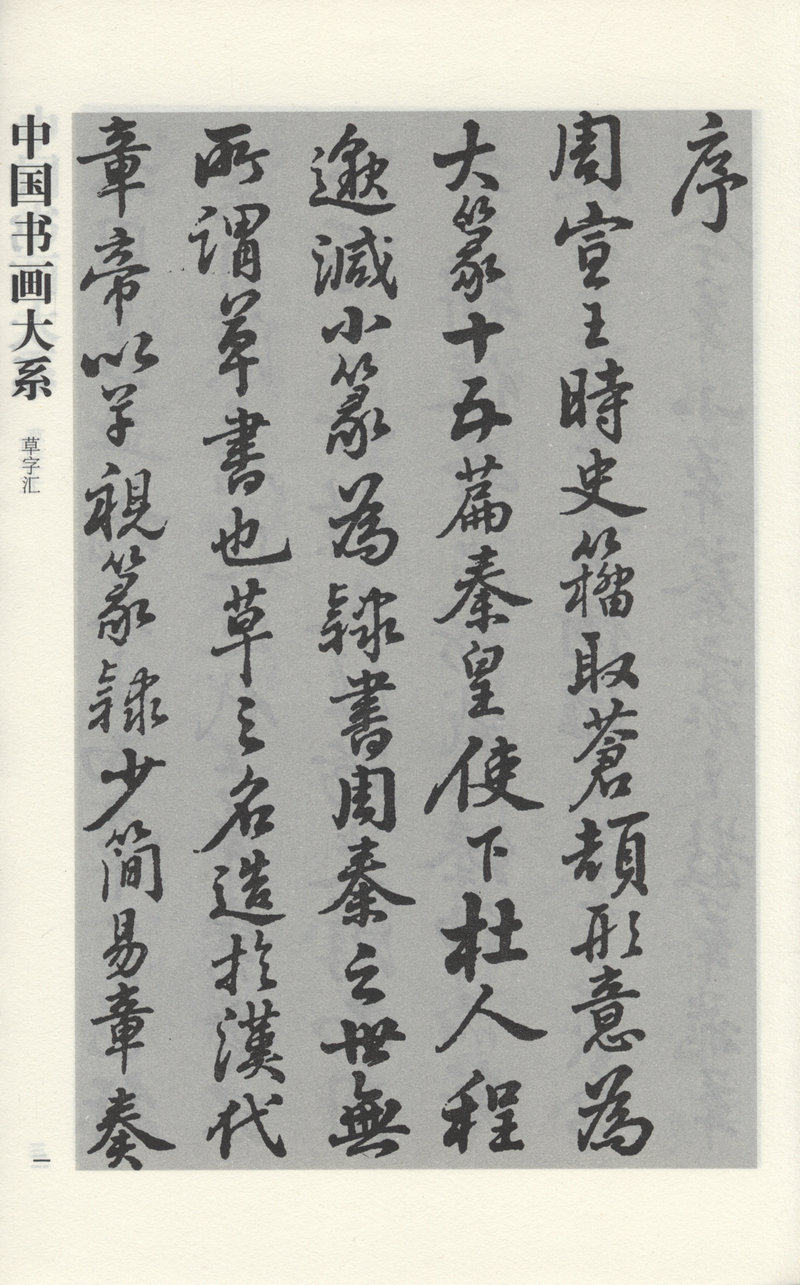 序
周宣王時史籀取蒼頡形意為
大篆十五篇秦皇使下杜人程
邈減小篆為隸書周秦之世無
所謂草書也草之名造於漢代
章帝以草視篆隸少簡易章奏
中国书画大系
草字汇
一